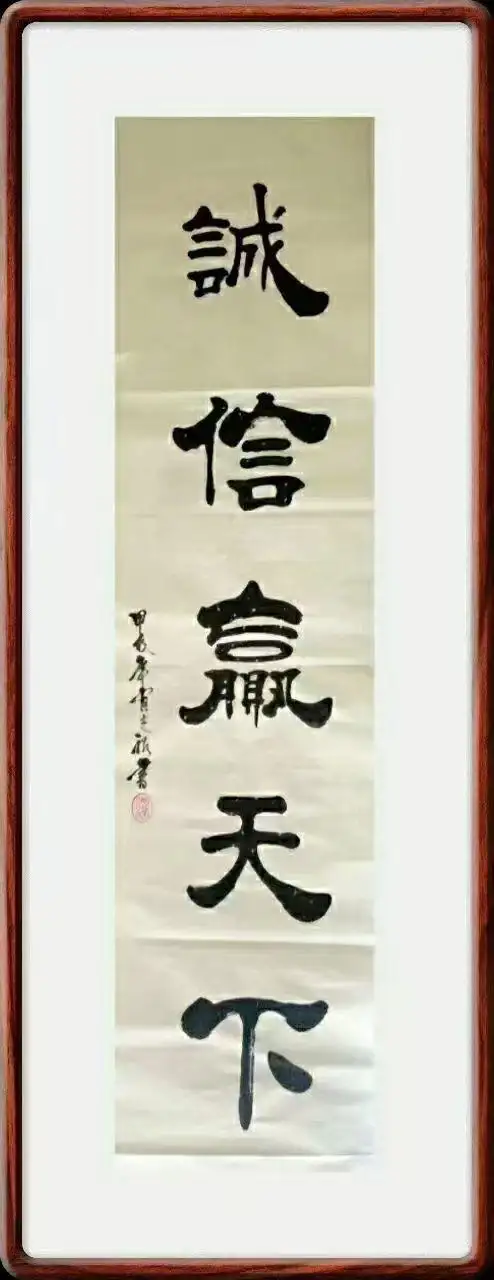 誠信贏天下
甲辰年
書